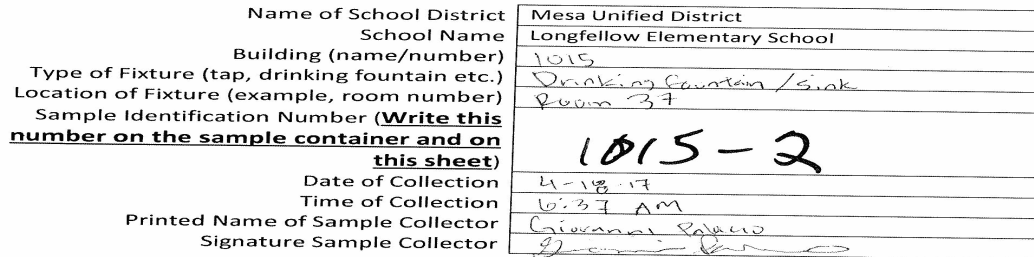 Name of School District Mesa Unified District
School Name Longfellow Elementary School
Building (name/number) 1015
Type of Fixture (tap, drinking fountain etc.) Drinking fountain / sink
Location of Fixture (example, room number) Room 37
Sample Identification Number (Write this
number on the sample container and on
this sheet) 1015-2
Date of Collection 4-18-17
Time of Collection 6:37 AM
Printed Name of Sample Collector Giovanni Palacio
Signature Sample Collector